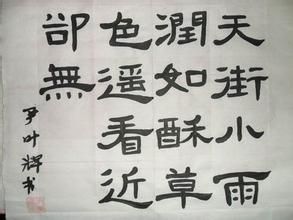 天街小雨
潤如酥草
色遥看近
卻無
尹叶辉书